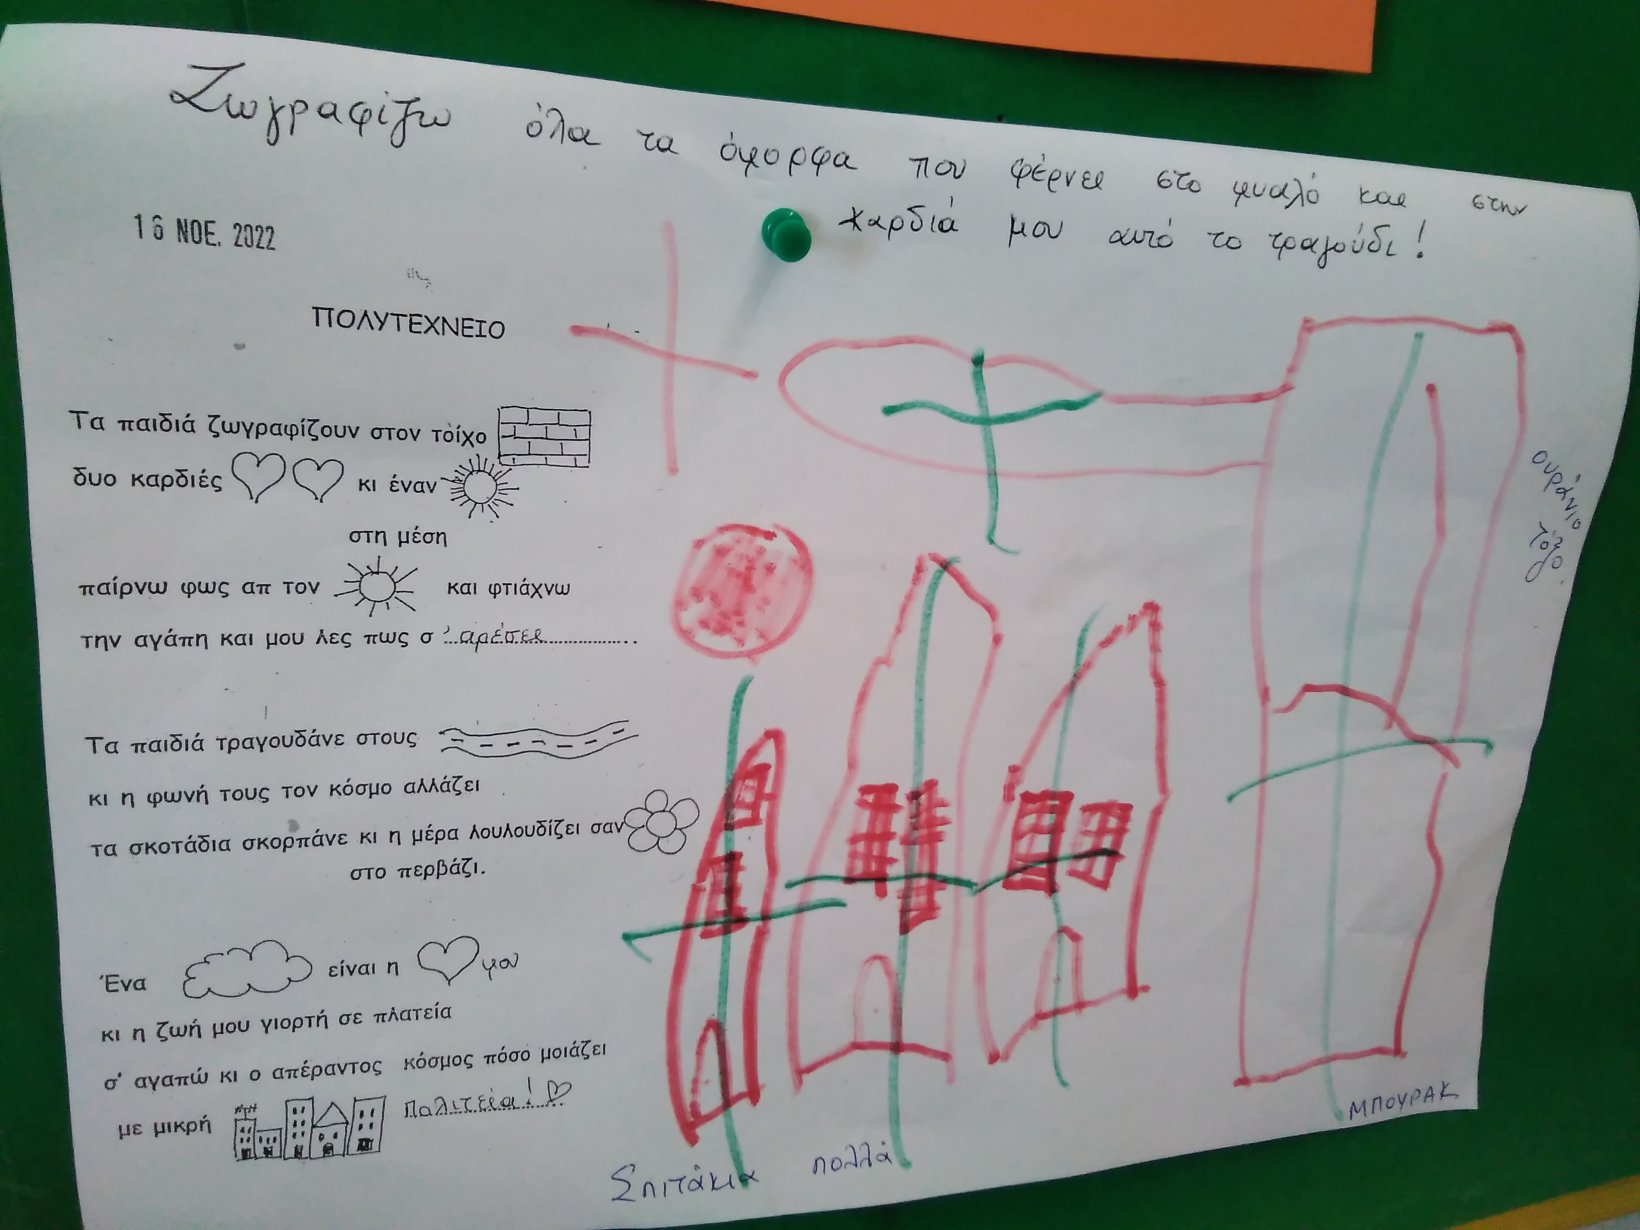 Ζωγραφίζω όλα τα όμορφα που φέρνει στο μυαλό και στην
καρδιά μου αυτό το τραγούδι!
16 ΝΟΕ. 2022
ΠΟΛΥΤΕΧΝΕΙΟ
Τα παιδιά ζωγραφίζουν στον τοίχο
δυο καρδιές κι έναν
στη μέση
παίρνω φως απ τον και φτιάχνω
την αγάπη και μου λες πως σ' αρέσει
Τα παιδιά τραγουδάνε στους
κι η φωνή τους τον κόσμο αλλάζει
τα σκοτάδια σκορπάνε κι η μέρα λουλουδίζει σαν
στο περβάζι.
Ένα είναι η μου
κι η ζωή μου γιορτή σε πλατεία
σ' αγαπώ κι ο απέραντος κόσμος πόσο μοιάζει
με μικρή Πολιτεία!
ουράνιο
τόξο
Σπιτάκια πολλά
ΜΠΟΥΡΑΚ